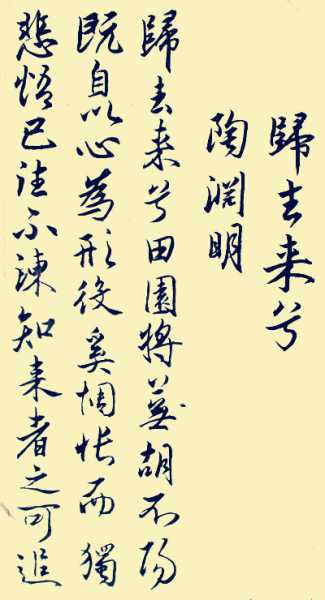 歸去来兮
陶淵明
歸去来兮田園將蕪胡不歸
既自以心為形役奚惆悵而獨
悲悟已往不諫知来者之可追